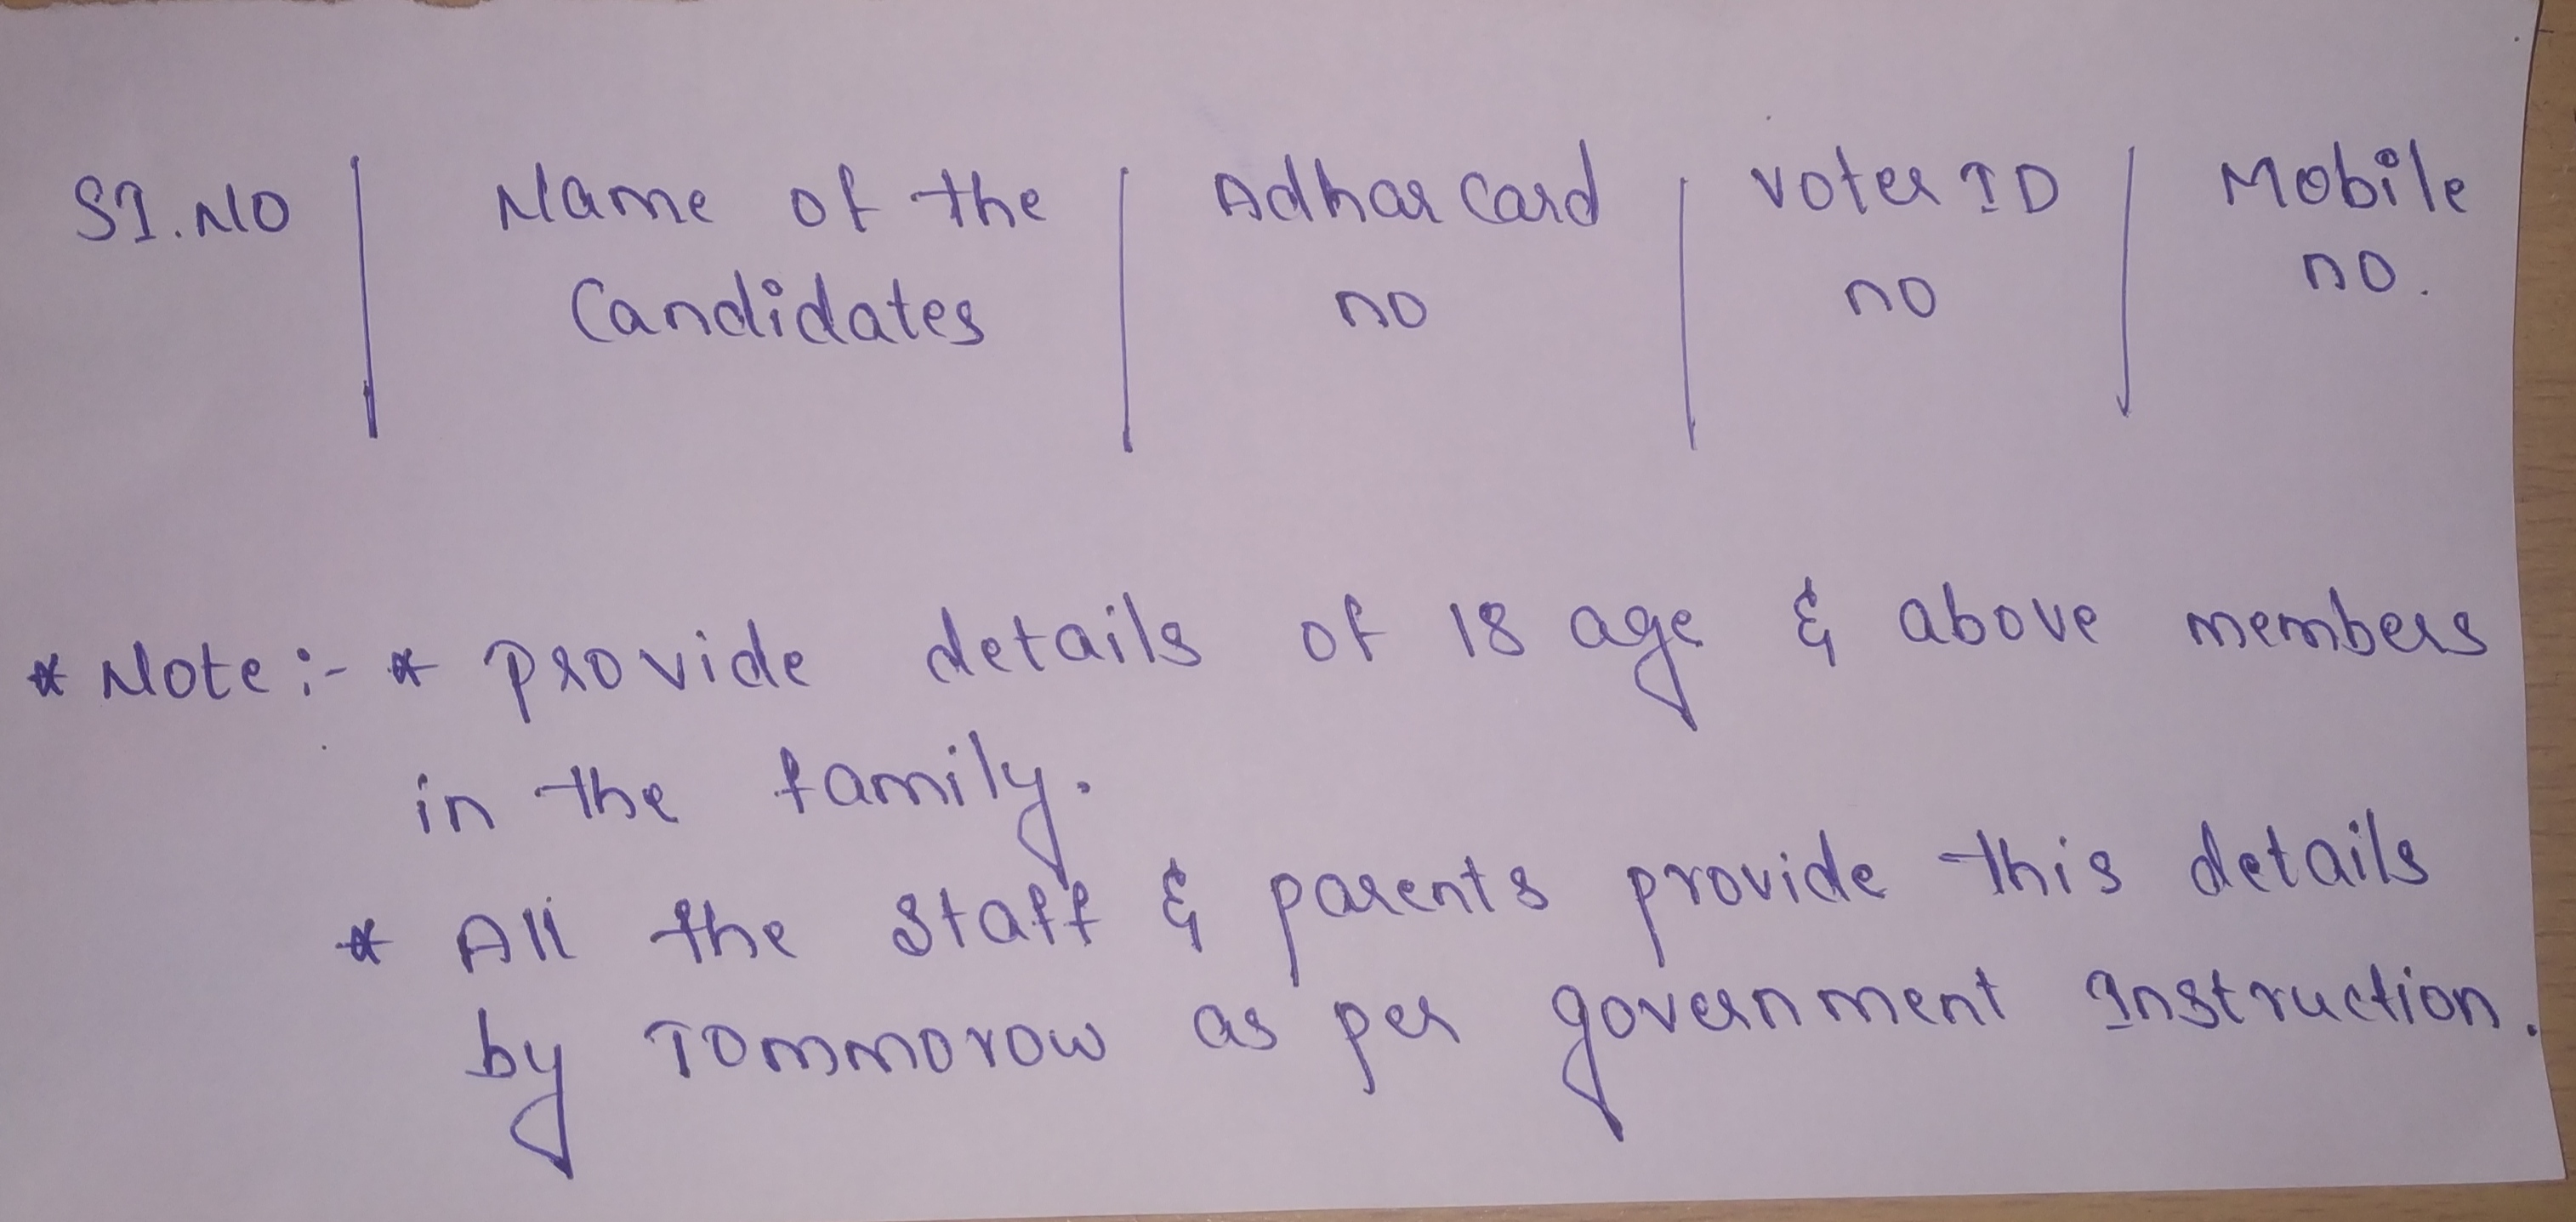 SI.NO | Name of the | Adhar Card | Voter ID | Mobile
Candidates | no | no | no.
* Note :- * Provide details of 18 age & above members
in the family.
* All the staff & parents provide this details
by Tommorow as per government Instruction.